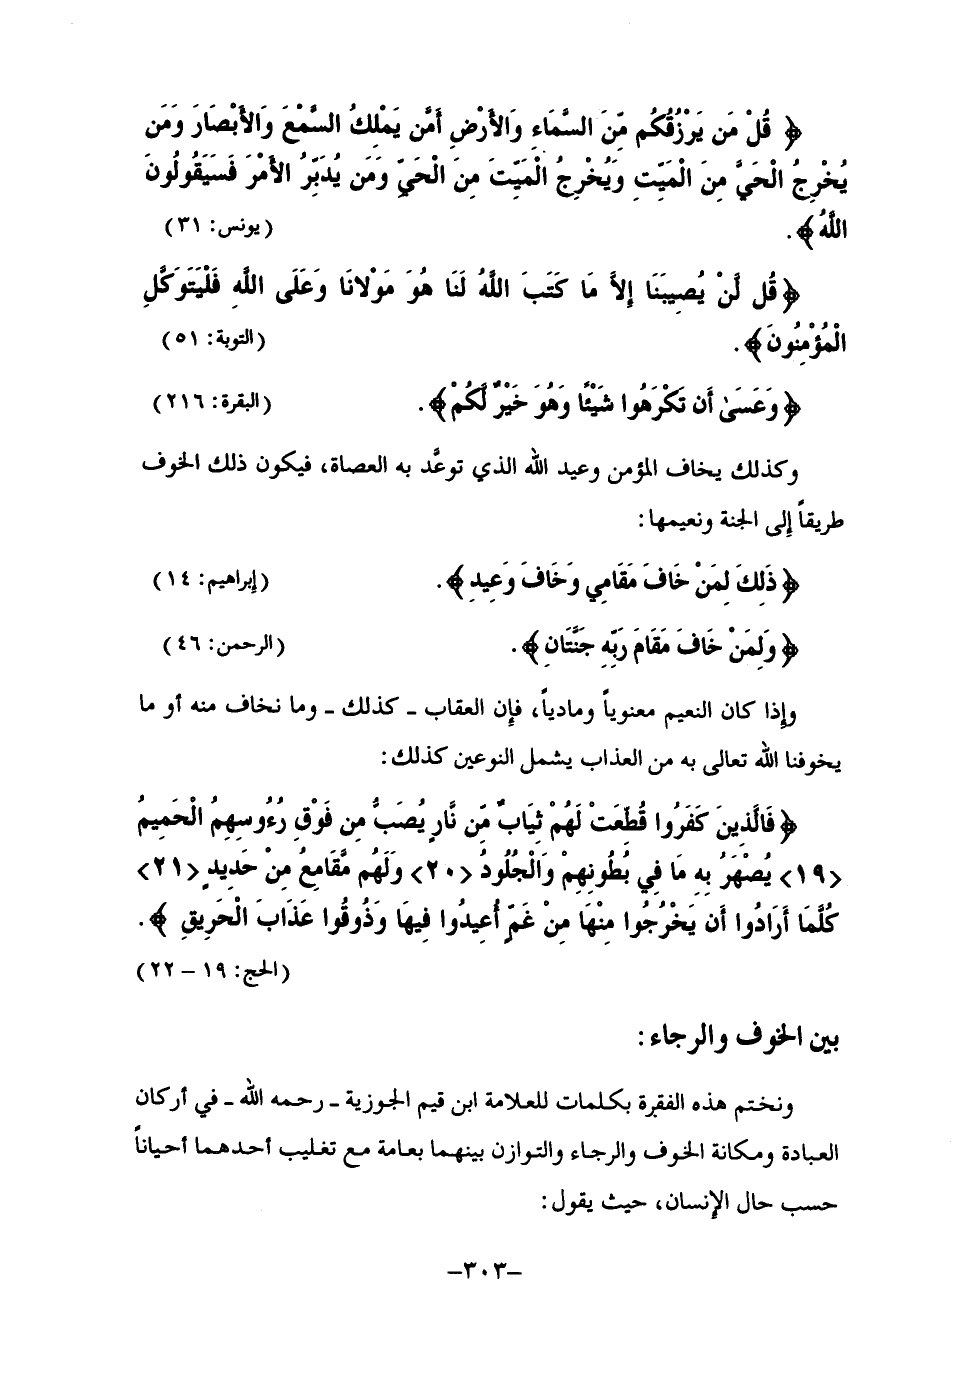 ﴿ قُلْ مَن يَرْزُقُكُم مِّنَ السَّمَاءِ وَالأَرْضِ أَمَّن يَمْلِكُ السَّمْعَ وَالأَبْصَارَ وَمَن
يُخْرِجُ الْحَيَّ مِنَ الْمَيِّتِ وَيُخْرِجُ الْمَيِّتَ مِنَ الْحَيِّ وَمَن يُدَبِّرُ الأَمْرَ فَسَيَقُولُونَ
اللَّهُ ﴾. (يونس: ٣١)
﴿ قُل لَّنْ يُصِيبَنَا إِلاَّ مَا كَتَبَ اللَّهُ لَنَا هُوَ مَوْلانَا وَعَلَى اللَّهِ فَلْيَتَوَكَّلِ
الْمُؤْمِنُونَ ﴾. (التوبة: ٥١)
﴿ وَعَسَىٰ أَن تَكْرَهُوا شَيْئًا وَهُوَ خَيْرٌ لَّكُمْ ﴾. (البقرة: ٢١٦)
وكذلك يخاف المؤمن وعيد الله الذي توعَّد به العصاة، فيكون ذلك الخوف
طريقاً إلى الجنة ونعيمها:
﴿ ذَلِكَ لِمَنْ خَافَ مَقَامِي وَخَافَ وَعِيدِ ﴾. (إبراهيم: ١٤)
﴿ وَلِمَنْ خَافَ مَقَامَ رَبِّهِ جَنَّتَانِ ﴾. (الرحمن: ٤٦)
وإذا كان النعيم معنوياً ومادياً، فإن العقاب ـ كذلك ـ وما نخاف منه أو ما
يخوفنا الله تعالى به من العذاب يشمل النوعين كذلك:
﴿ فَالَّذِينَ كَفَرُوا قُطِّعَتْ لَهُمْ ثِيَابٌ مِّن نَّارٍ يُصَبُّ مِن فَوْقِ رُءُوسِهِمُ الْحَمِيمُ
<١٩> يُصْهَرُ بِهِ مَا فِي بُطُونِهِمْ وَالْجُلُودُ <٢٠> وَلَهُم مَّقَامِعُ مِنْ حَدِيدٍ <٢١>
كُلَّمَا أَرَادُوا أَن يَخْرُجُوا مِنْهَا مِنْ غَمٍّ أُعِيدُوا فِيهَا وَذُوقُوا عَذَابَ الْحَرِيقِ ﴾.
(الحج: ١٩ – ٢٢)
بين الخوف والرجاء:
ونختم هذه الفقرة بكلمات للعلامة ابن قيم الجوزية ـ رحمه الله ـ في أركان
العبادة ومكانة الخوف والرجاء والتوازن بينهما بعامة مع تغليب أحدهما أحياناً
حسب حال الإنسان، حيث يقول:
–٣٠٣–